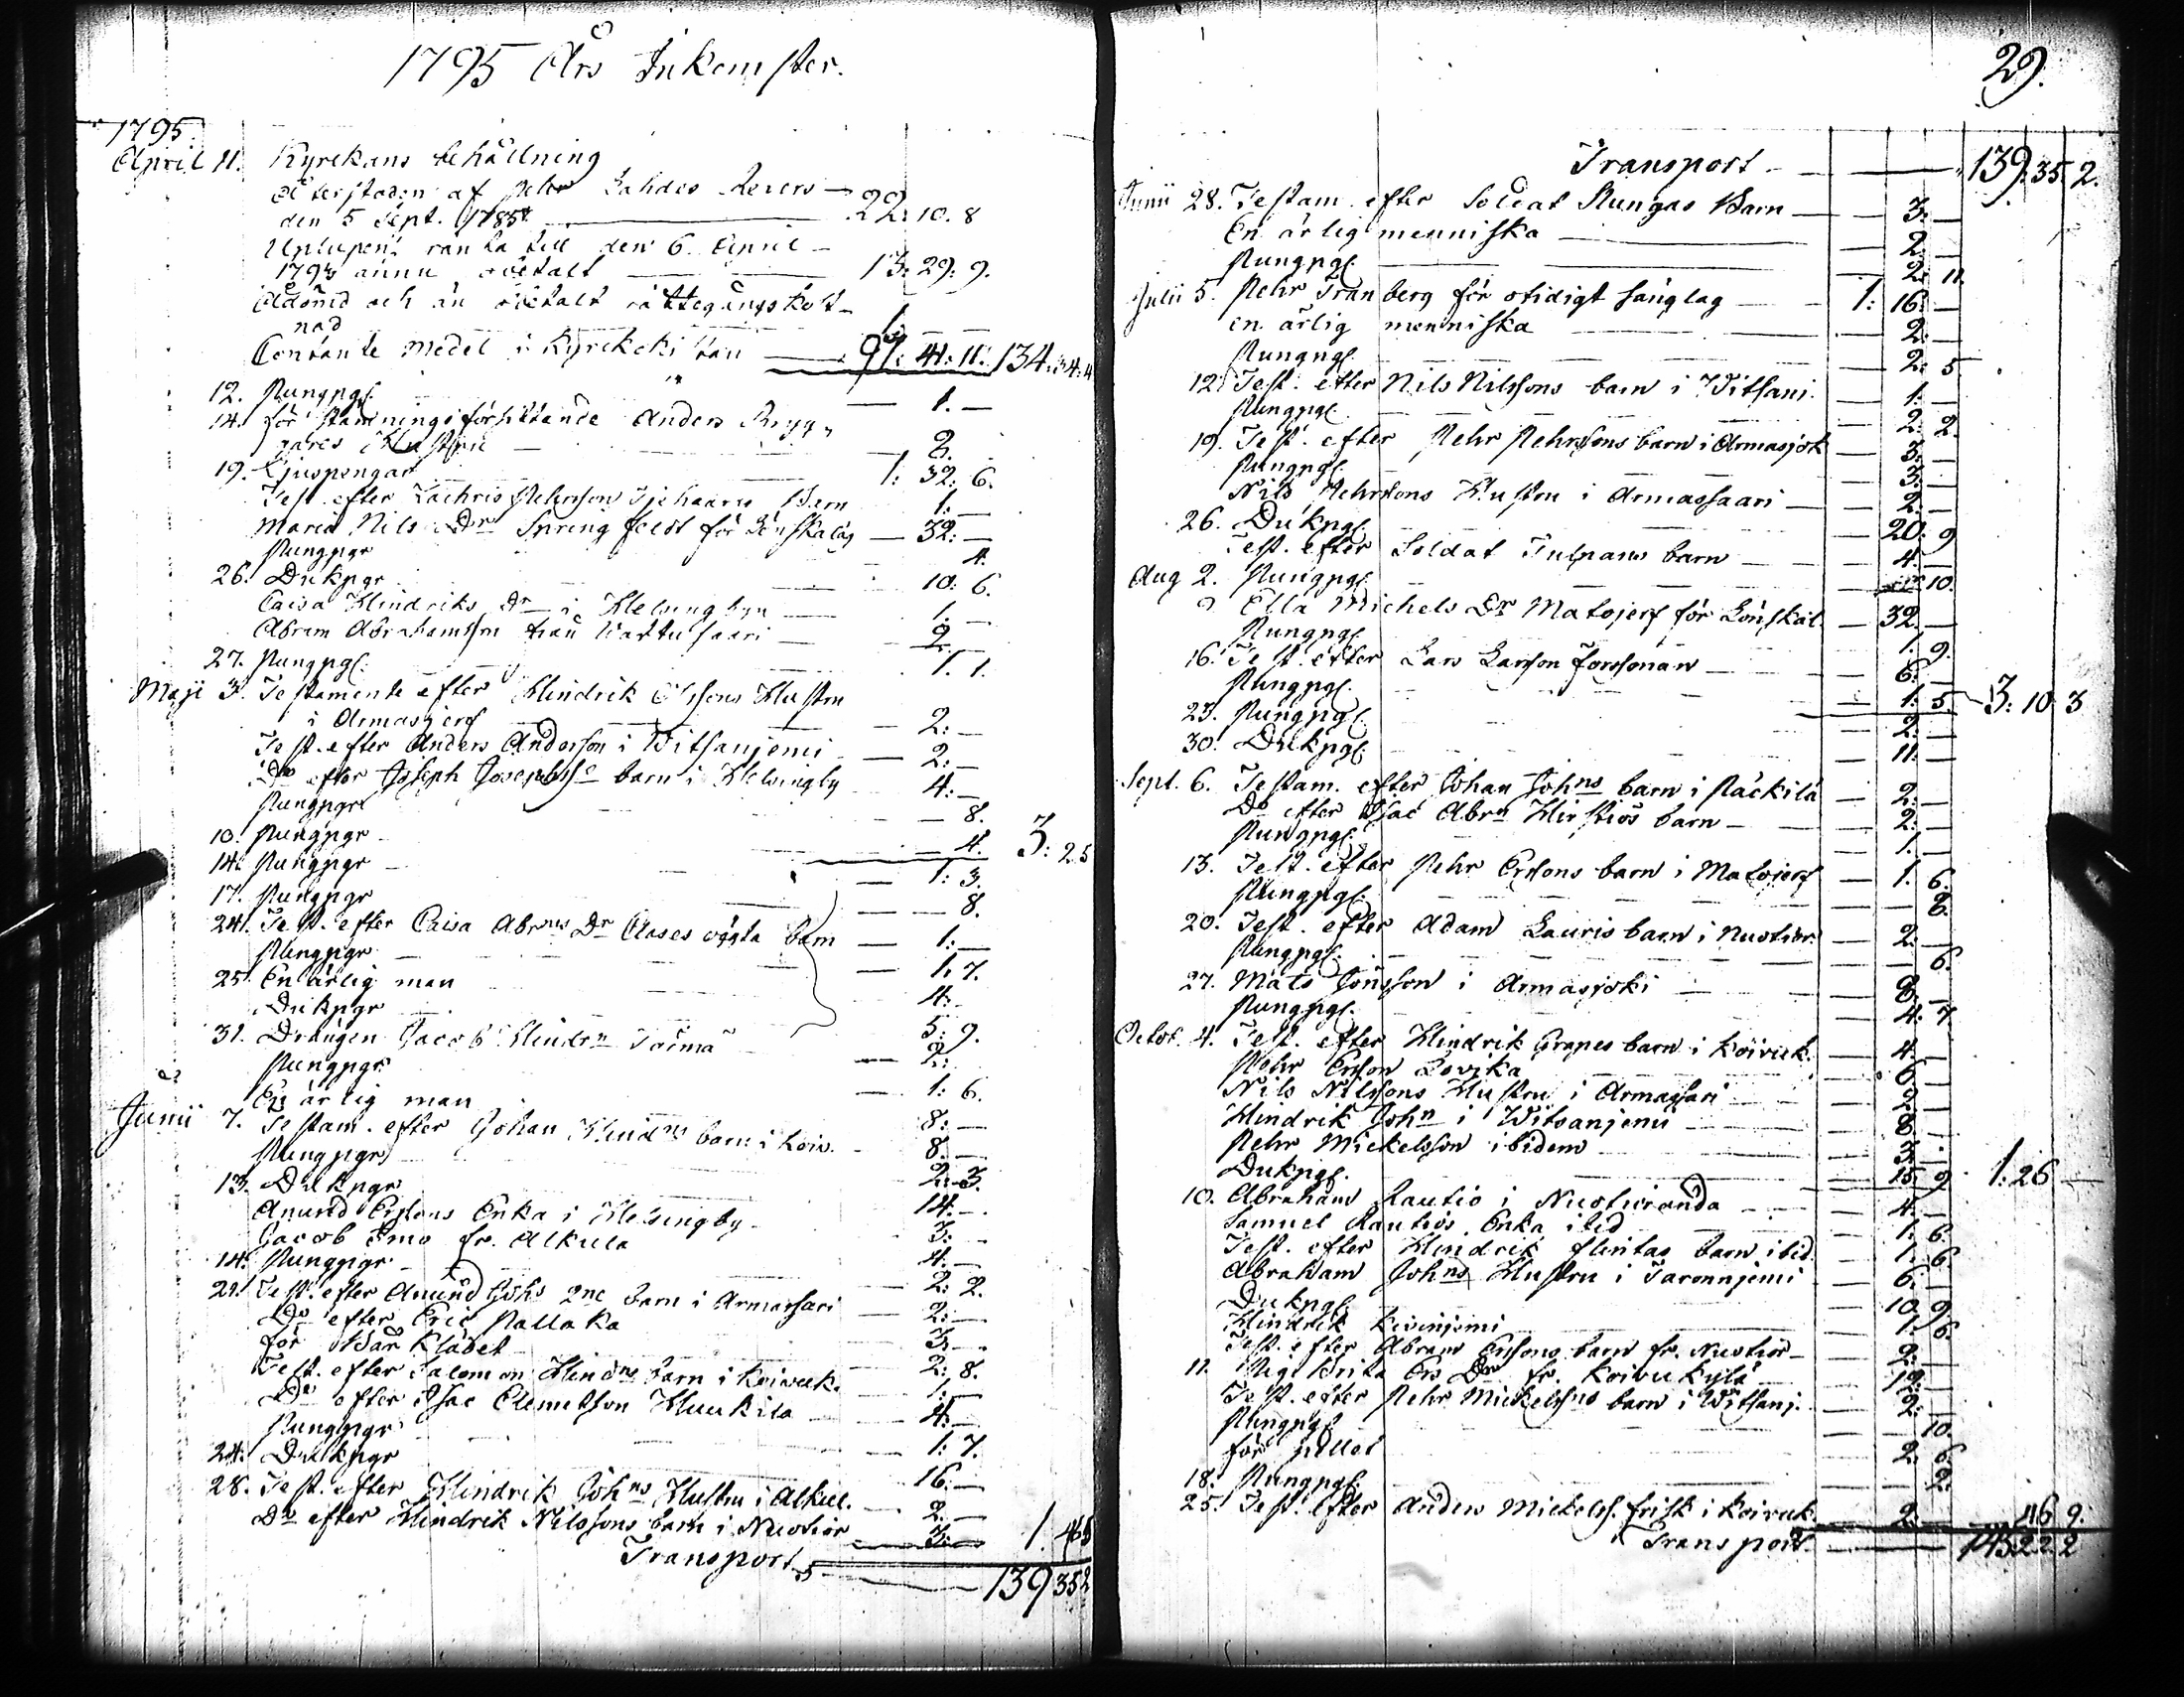 1795 Års Inkomster.
1795.
April 11. Kyrckans behållning
Återstoden af Petter Lahdes Revers —
den 5 Sept. 1785 — 22: 10. 8
Uplupen ränta till den 6 April —
179 ännu obetalt — 13: 29: 9.
Ådömd och än obetalt rättegångs kost-
nad — 1. — —
Contante medel i Kyrckokistan — 97: 41: 11. 134: 34: 4
12. Pungpgr — 1. —
14. för stämningsförsittande Anders Bryg-
gares Hustru — 2.
19. Ljuspengar — 1: 32: 6.
Test. efter Zachris Petersson barn — 1: —
Maria Nils Dr Springfeldt för Lönskaläg — 32: —
Pungpgr — 4.
26. Dukpgr — 10: 6.
Caisa Hindriks Dr i Helsingbyn — 1: —
Abram Abrahamsson från saari — 2. —
27. Pungpgr — 1. 1.
Maji 3. Testamente efter Hindrik Olssons Hustru
i Armasjerf — 2: —
Test. efter Anders Andersson i Witsanjemi — 2: —
Do efter Joseph barn i Helsingby — 4: —
Pungpgr — 8.
10. Pungpgr — 4. 3: 25
14. Pungpgr — 1: 3.
17. Pungpgr — 8.
24. Test. efter Caisa Abrms Dr Clases oägta barn — 1: —
Pungpgr — 1. 7.
25. En ärlig man — 4: —
Dukpgr — 5: 9.
31. Drängen Jacob Hindrn — 2:
Pungpgr — 1: 6.
En ärlig man — 8: —
Junii 7. Testam. efter Johan Hindrs barn i Koiv. — 8: —
Pungpgr — 2: 3.
13. Dukpgr — 14. —
Anund Erssons Enka i Helsingby — 3: —
Jacob fr. Alkula — 4. —
14. Pungpgr — 2: 2.
21. Test. efter Anund Johs barn i Armassari — 2: —
Do efter Eric Pallaka — 3: —
för Bårklädet — 2: 8.
Test. efter Salomon Hindrs barn i Koivuk. — 1: —
Do efter Isac Clemetsson — 4: —
Pungpgr — 1: 7.
24. Dukpgr — 16: —
28. Test. efter Hindrik Johns Hustru i Alkul. — 2. —
Do efter Hindrik Nilssons barn i Nuotior — 3: —
Transport — 139 35 2
29.
Transport — 139. 35. 2.
Junii 28. Testam. efter Soldat Rungas Barn — 3: —
En ärlig menniska — 2: —
Pungpgr — 2: 11.
Julii 5. Pehr Tranberg för otidigt sänglag — 1: 16: —
en ärlig menniska — 2: —
Pungpgr — 2: 5
12. Test. efter Nils Nilssons barn i Witsanj. — 1: —
Pungpgr — 2: 2.
19. Test. efter Pehr Pehrssons barn i Armasjok — 3: —
Pungpgr — 3: —
Nils Pehrssons Hustru i Armassaari — 2: —
26. Dukpgr — 20: 9
Test. efter Soldat Tulpans barn — 4: —
Aug 2. Pungpgr — 10.
9 Ella Michels Dr Matojerf för Lönskal. — 32 —
Pungpgr — 1. 9.
16. Test. efter Lars Larsson — 6: —
Pungpgr — 1: 5. 3: 10. 3
23. Pungpgr — 2: —
30. Dukpgr — 11: —
Sept. 6. Testam. efter Johan Johns barn i Päckilä — 2: —
Do efter Isac Abrn barn — 2: —
Pungpgr — 1. —
13. Test. efter Pehr Erssons barn i Matojerf — 1. 6.
Pungpgr — 8.
20. Test. efter Adam Lauris barn i Nuotior. — 2: —
Pungpgr — 6.
27. Mats Jönsson i Armasjoki — 8. —
Pungpgr — 4. 7
Octob. 4. Test. efter Hindrik Grapes barn i Koivuk. — 4: —
Pehr Ersson Lovika — 6 —
Nils Nilssons Hustru i Armassari — 2. —
Hindrik John i Witsanjemi — 8. —
Pehr Mickelsson ibidem — 3: —
Dukpgr — 15. 9 1: 26 —
10. Abraham Rautio i Nuotioranda — 4. —
Samuel Rautios Enka ibid — 1: 6.
Test. efter Hindrik Flintas barn ibid. — 1: 6.
Abraham Johns Hustru i — 6: —
Dukpgr — 10. 9.
Hindrik Kivinjemi — 1. 6.
Test. efter Abram Erssons barn fr. Nuotior — 2: —
11. Pig. Brita Ers Dr fr. Koivukylä — 12: —
Test. efter Pehr Mickelssns barn i Witsanj. — 2: —
Pungpgr — 10.
för — 2. 6.
18. Pungpgr — 2.
25. Test. efter Anders Mickelss. Frisk i Koivuk. — 2. — 46 9.
Transport. — 143. 22 2